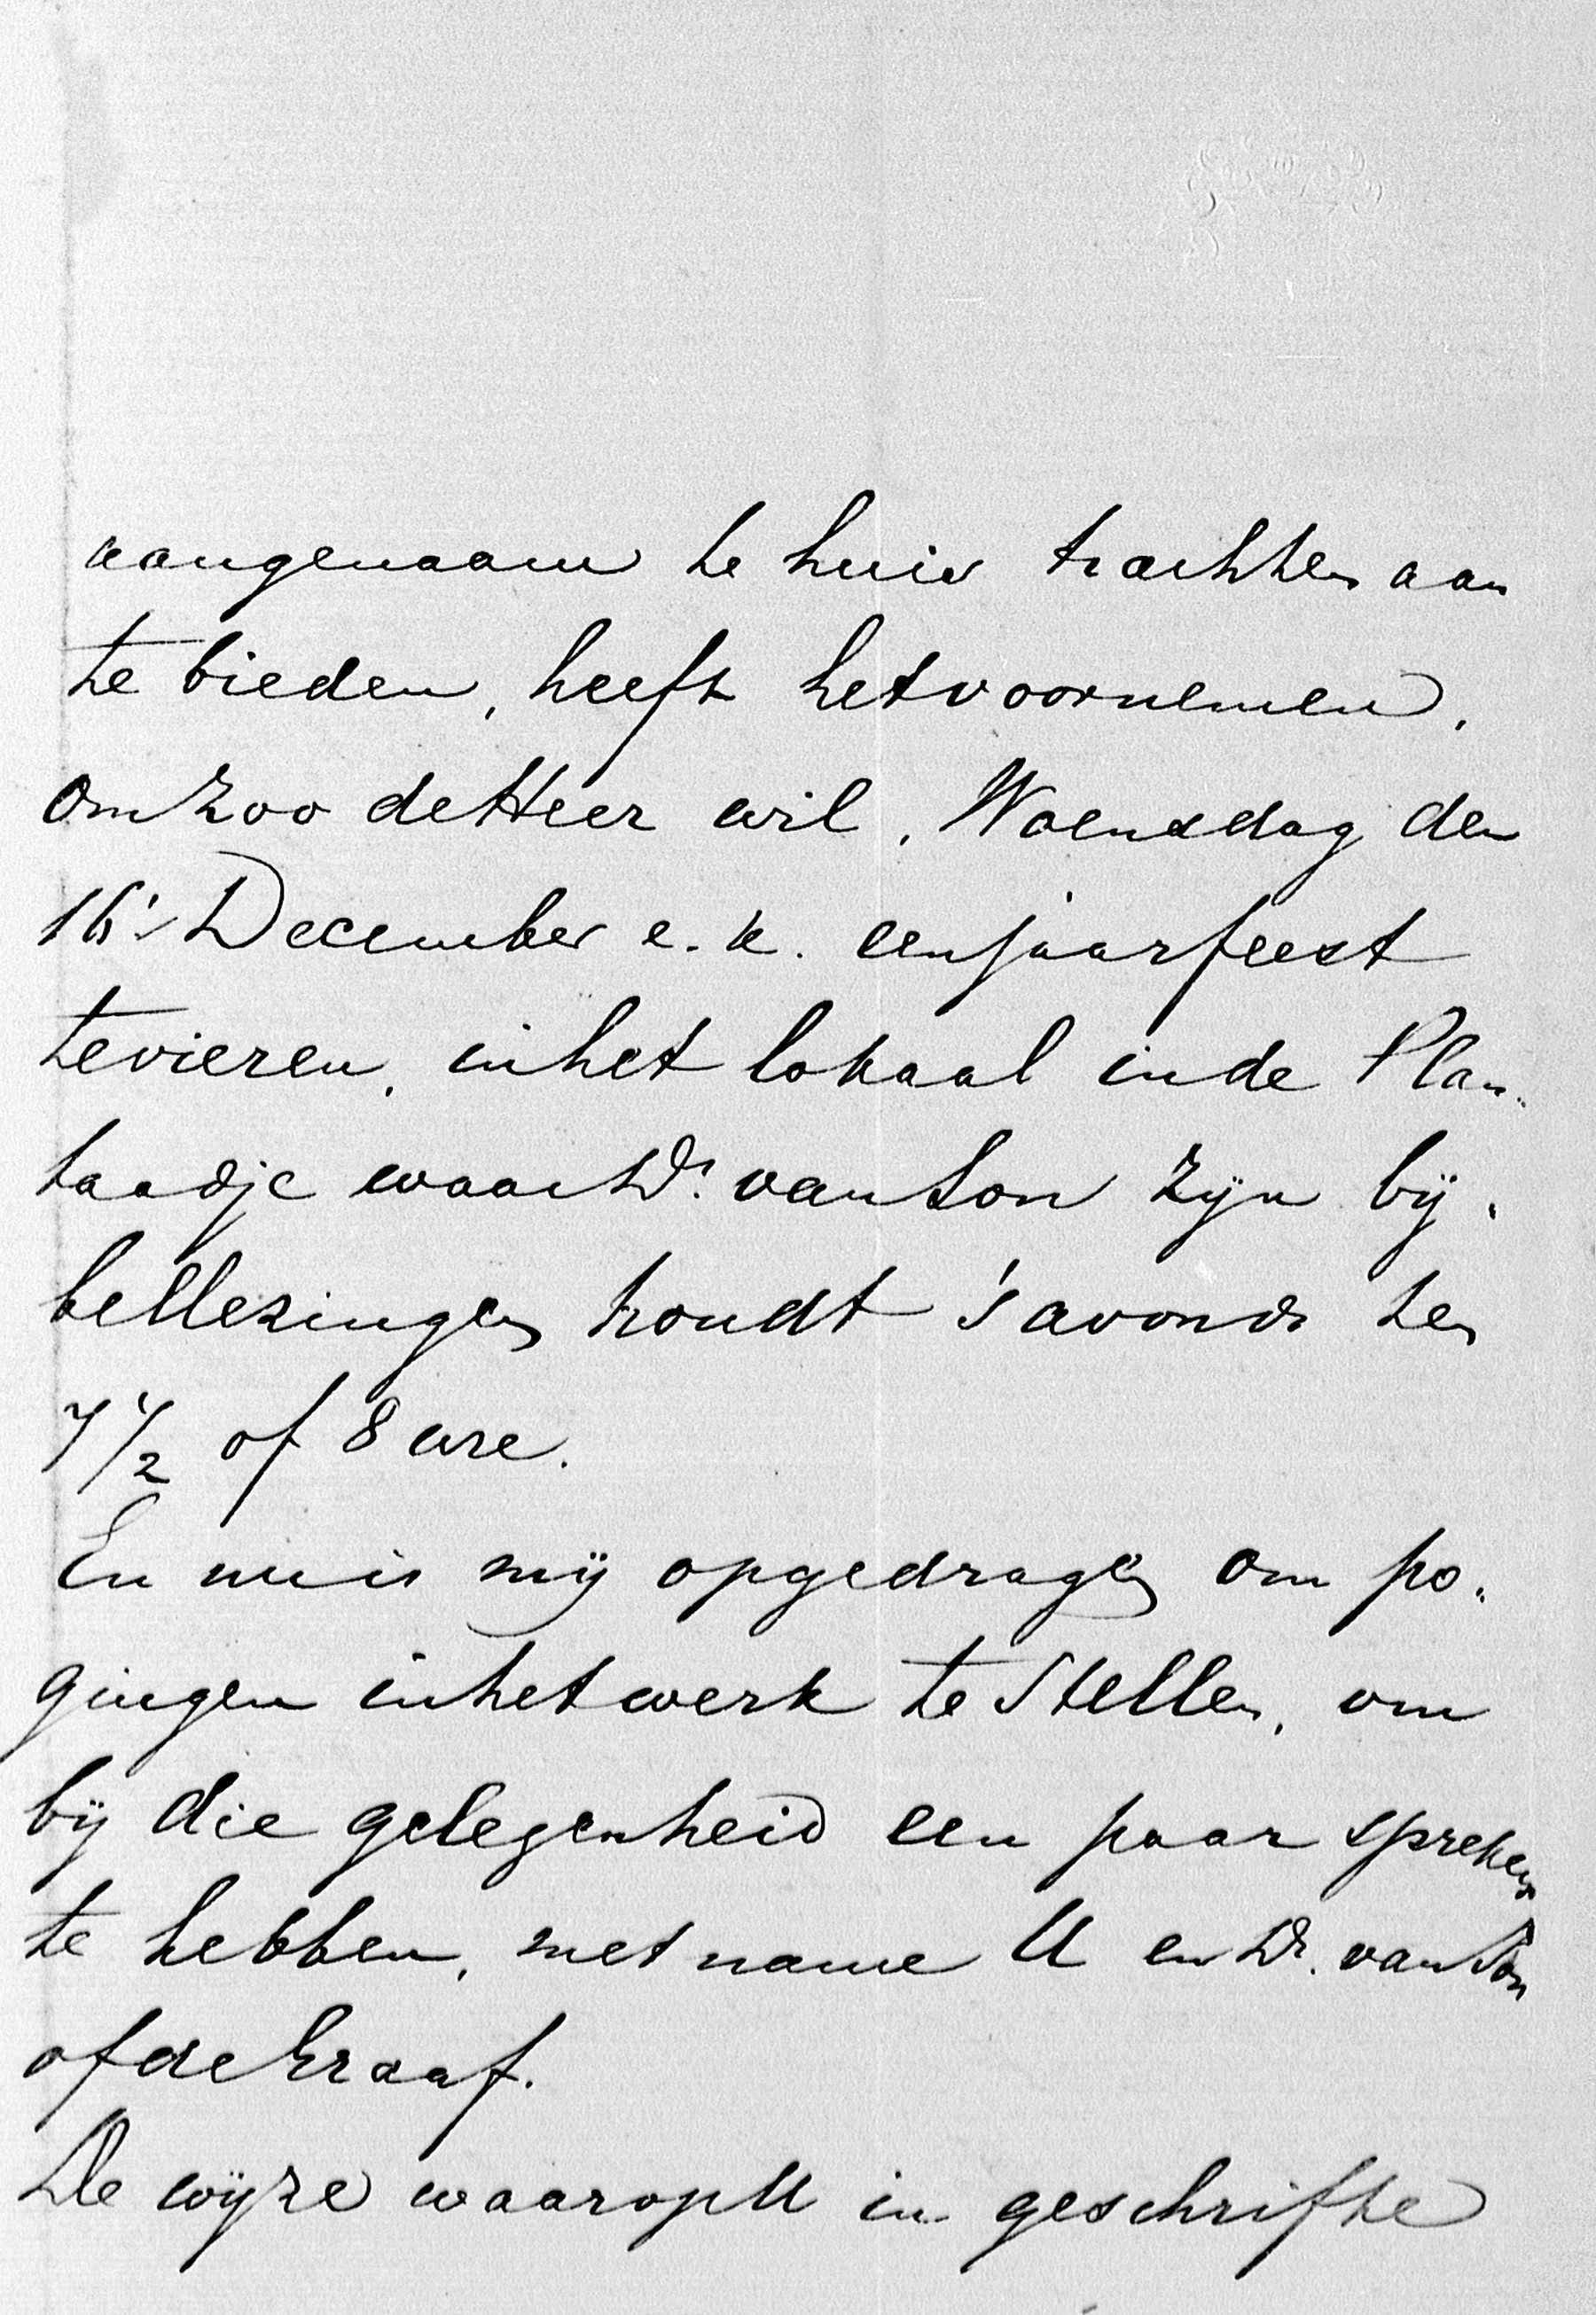 aangenaam te huis trachten aan
te bieden, heeft het voornemen,
om zoo de Heer wil, Woensdag den
16' December e.k. een jaarfeest
te vieren, in het lokaal in de Plan-
taadje waar Ds. van Son zijn bij-
bellezingen houdt 's avonds ten
7 1/2 of 8 ure.
En nu is mij opgedragen om po-
gingen in het werk te stellen, om
bij die gelegenheid een paar sprekers
te hebben, met name U en Ds. van Son
of de Graaf.
De wijze waarop U in geschrifte